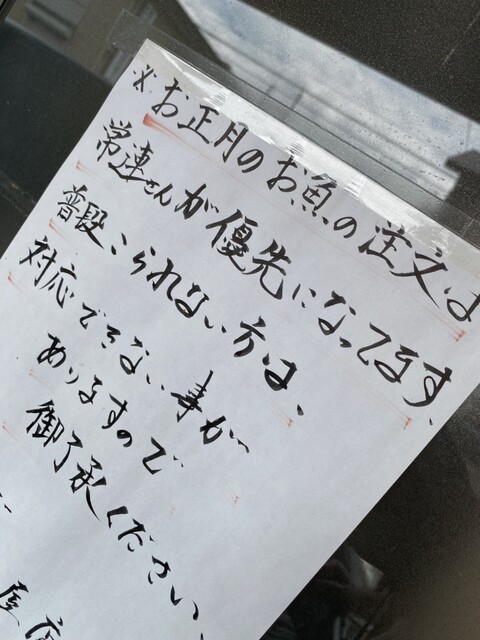 ※お正月のお魚の注文は
常連さんが優先になってます、
普段、こられない方は、
対応できない事が
ありますので
御了承ください、
屋店